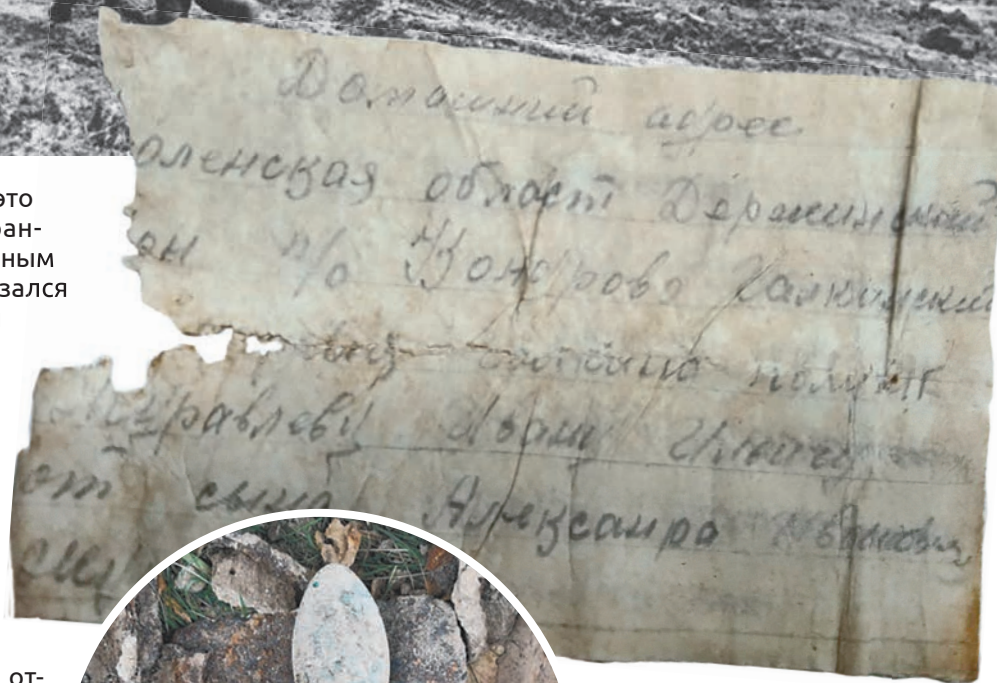 это
ан-
ным
зался
Домашний адрес
оленская област Держинский
он п/о Кондрово
получит
Журавлеву Ивану
от сына Александра
от-